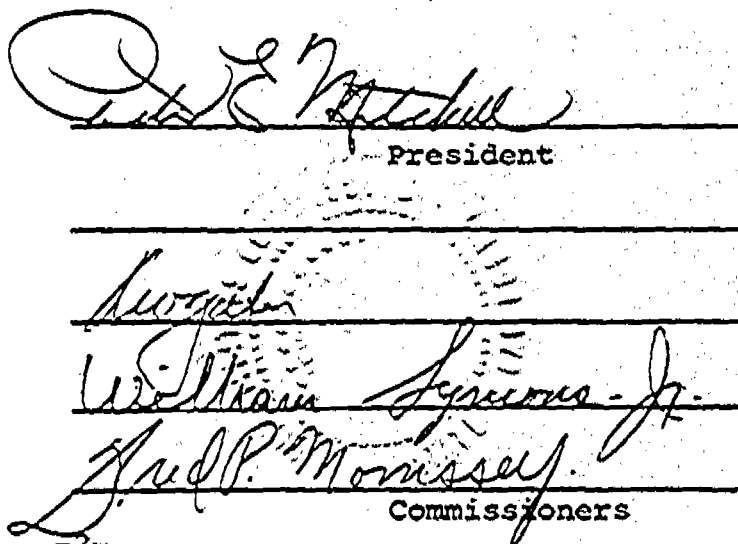 E Mitchell
President
William Symons Jr.
Fred P. Morrissey.
Commissioners